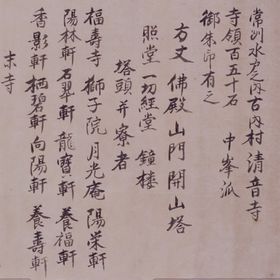 常州水戸之内古内村清音寺
寺領百五十石 中峯派
御朱印有之
方丈 佛殿 山門 開山塔
照堂 一切経堂 鐘楼
塔頭并寮者
福壽寺 獅子院 月光庵 陽栄軒
陽林軒 石翠軒 龍寶軒 養福軒
香影軒 栖碧軒 向陽軒 養壽軒
末寺